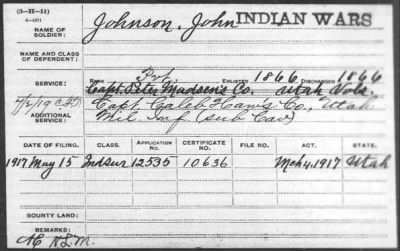 (3-H-11)
NAME OF SOLDIER: Johnson, John INDIAN WARS
NAME AND CLASS OF DEPENDENT:
SERVICE: RANK Pvt ENLISTED 1866 DISCHARGED 1866
Capt. Peter Madsen's Co. Utah Vols.
ADDITIONAL SERVICE: Capt. Caleb Haws Co., Utah
Mil. Inf. (sub Cav)
DATE OF FILING. CLASS. APPLICATION NO. CERTIFICATE NO. FILE NO. ACT. STATE.
1917 May 15 Indsur 12535 10636 Mch 4, 1917 Utah
BOUNTY LAND:
REMARKS: